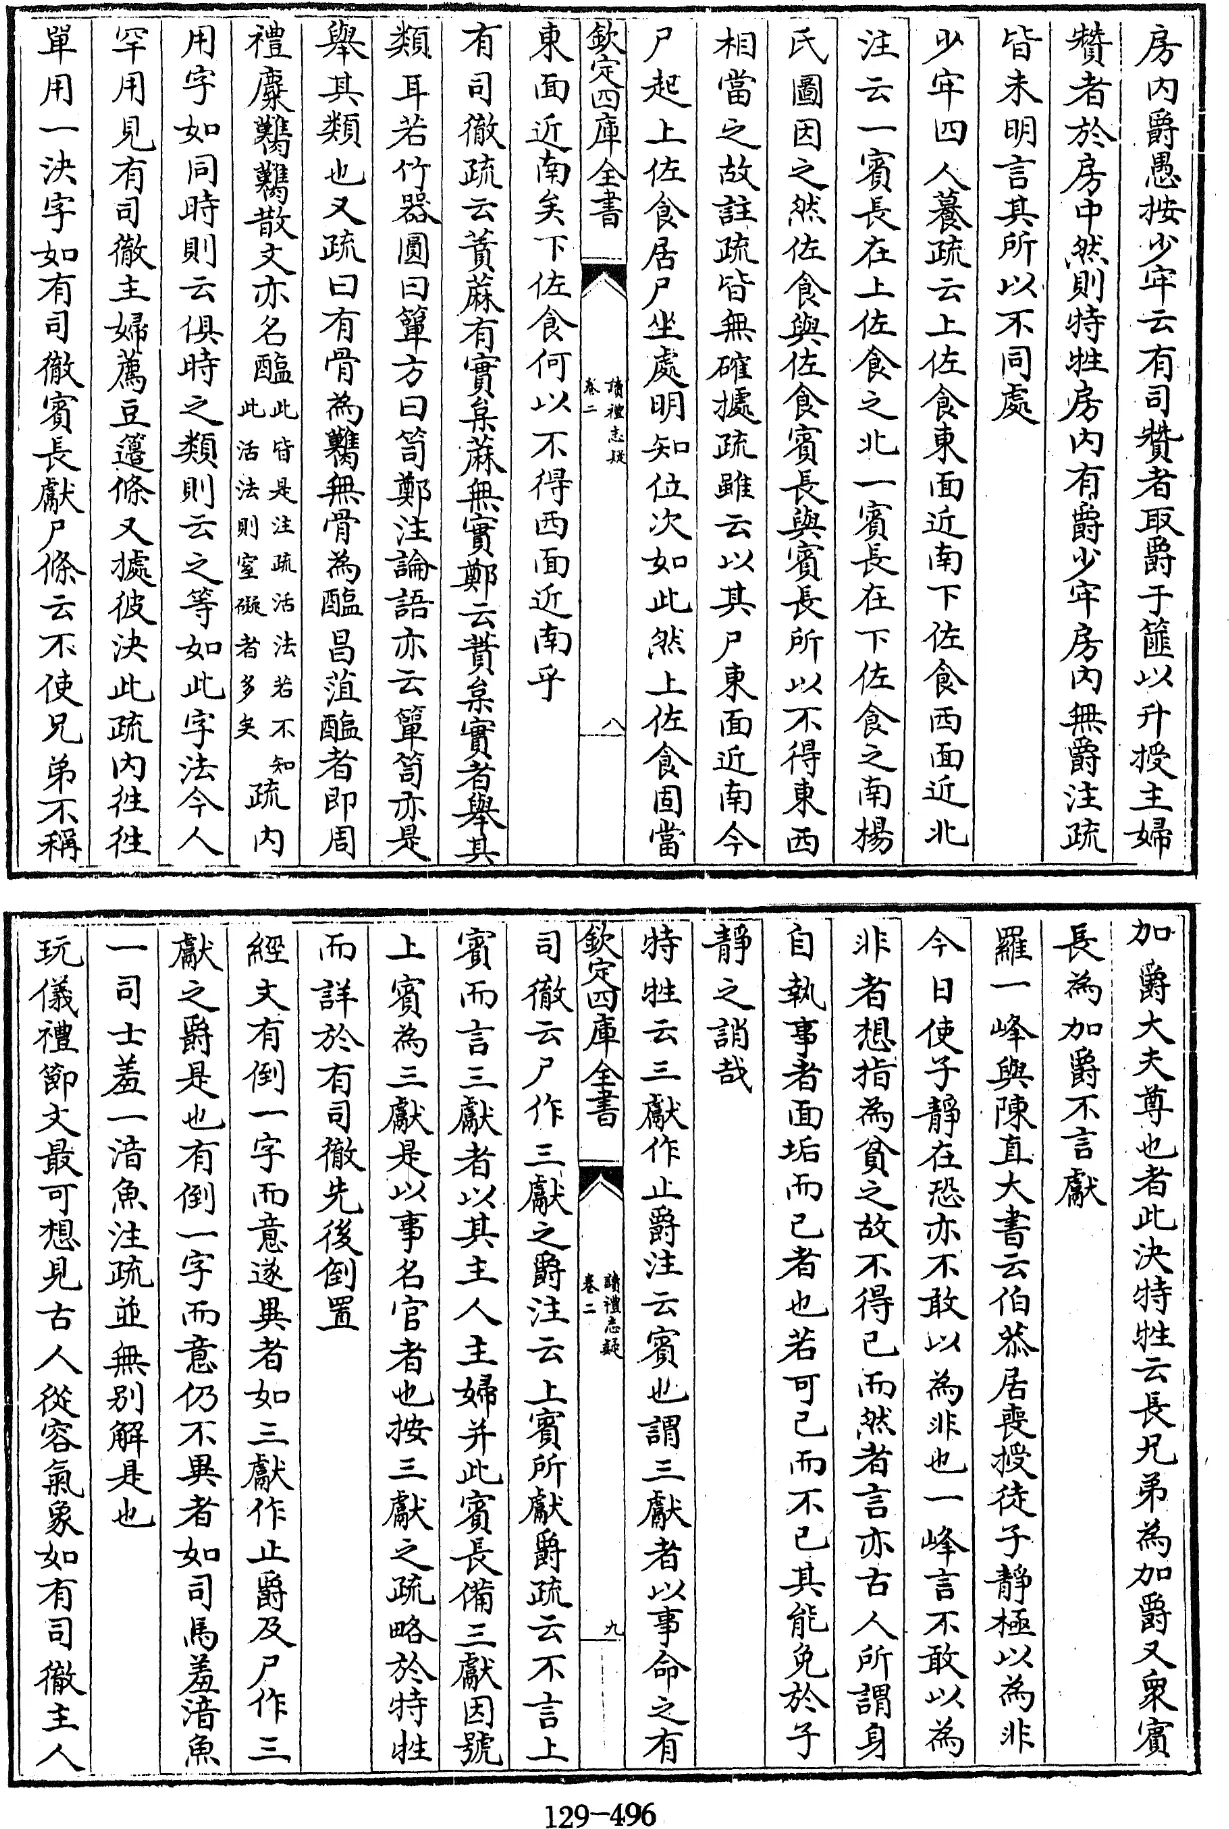 房内爵愚按少牢云有司贊者取爵于篚以升授主婦
贊者於房中然則特牲房内有爵少牢房内無爵注疏
皆未明言其所以不同處
少牢四人養疏云上佐食東面近南下佐食西面近北
注云一賓長在上佐食之北一賓長在下佐食之南楊
氏圖因之然佐食與佐食賓長與賓長所以不得東西
相當之故註疏皆無確據疏雖云以其尸東面近南今
尸起上佐食居尸坐處明知位次如此然上佐食固當
欽定四庫全書
讀禮志疑
卷二
八
東面近南矣下佐食何以不得西面近南乎
有司徹疏云蕡蔴有實枲蔴無實鄭云蕡枲實者舉其
類耳若竹器圓曰簞方曰笥鄭注論語亦云簞笥亦是
舉其類也又疏曰有骨為鸘無骨為醢昌菹醢者即周
禮麋鸘鸘散文亦名醢此皆是注疏活法若不知
此活法則窒礙者多矣疏内
用字如同時則云俱時之類則云之等如此字法今人
罕用見有司徹主婦薦豆籩條又據彼決此疏内徃徃
單用一決字如有司徹賓長獻尸條云不使兄弟不稱
加爵大夫尊也者此決特牲云長兄弟為加爵又衆賓
長為加爵不言獻
羅一峰與陳直大書云伯恭居喪授徒子靜極以為非
今日使子靜在恐亦不敢以為非也一峰言不敢以為
非者想指為貧之故不得已而然者言亦古人所謂身
自執事者面垢而已者也若可已而不已其能免於子
靜之誚哉
特牲云三獻作止爵注云賓也謂三獻者以事命之有
欽定四庫全書
讀禮志疑
卷二
九
司徹云尸作三獻之爵注云上賓所獻爵疏云不言上
賓而言三獻者以其主人主婦并此賓長備三獻因號
上賓為三獻是以事名官者也按三獻之疏略於特牲
而詳於有司徹先後倒置
經文有倒一字而意遂異者如三獻作止爵及尸作三
獻之爵是也有倒一字而意仍不異者如司馬羞湆魚
一司士羞一湆魚注疏並無别解是也
玩儀禮節文最可想見古人從容氣象如有司徹主人
129-496